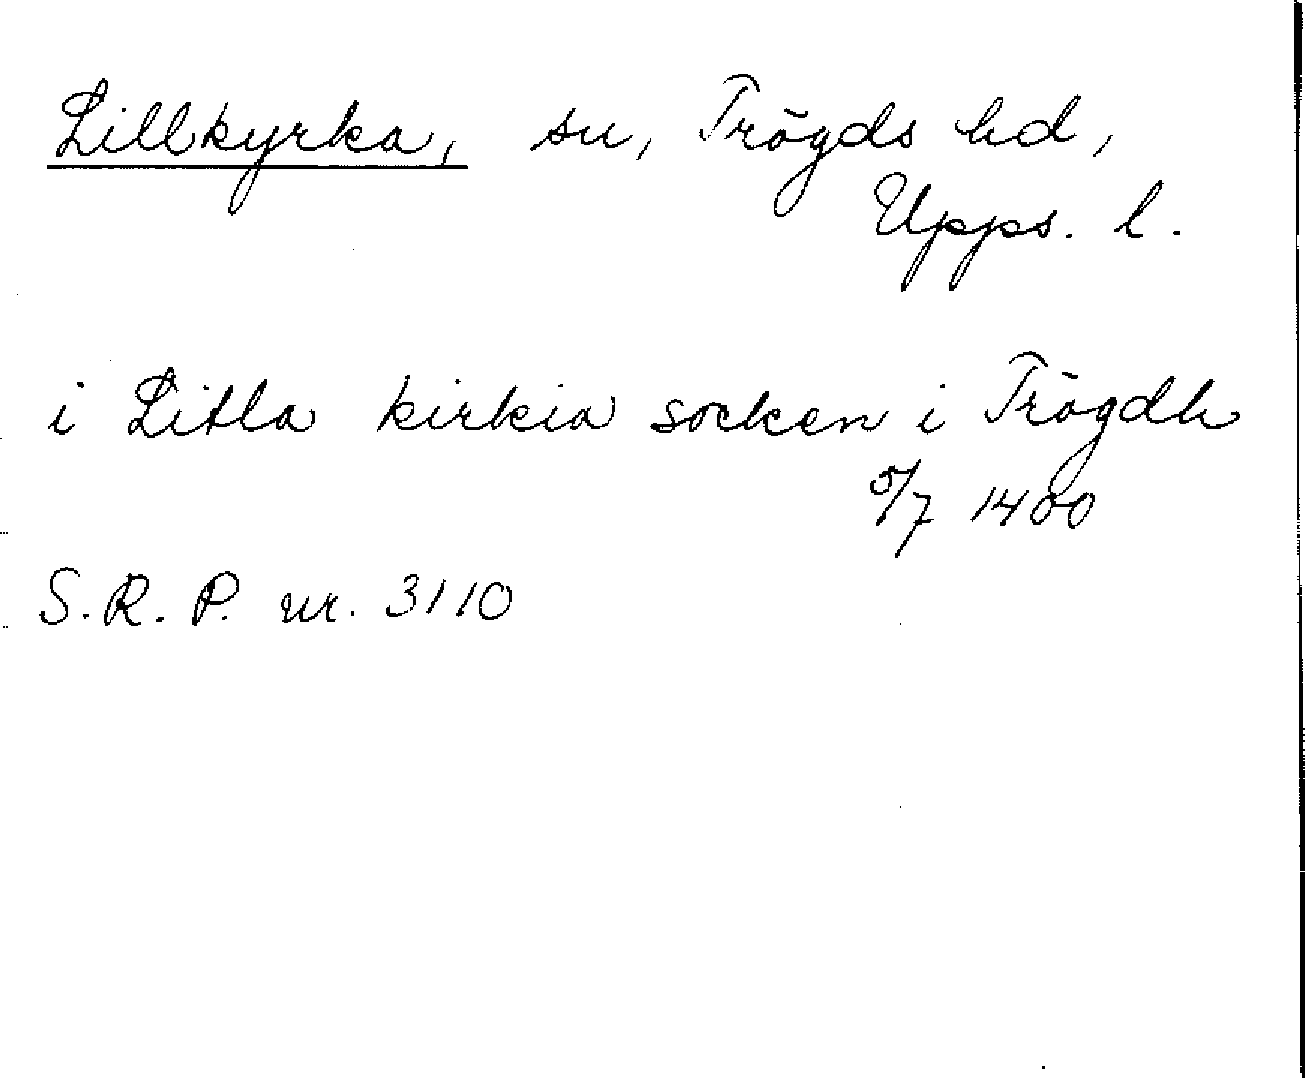 Lillkyrka, sn, Trögds hd,
Upps. l.
i Litla kirkia socken i Trögdh
5/7 1400
S.R.P. nr. 3110